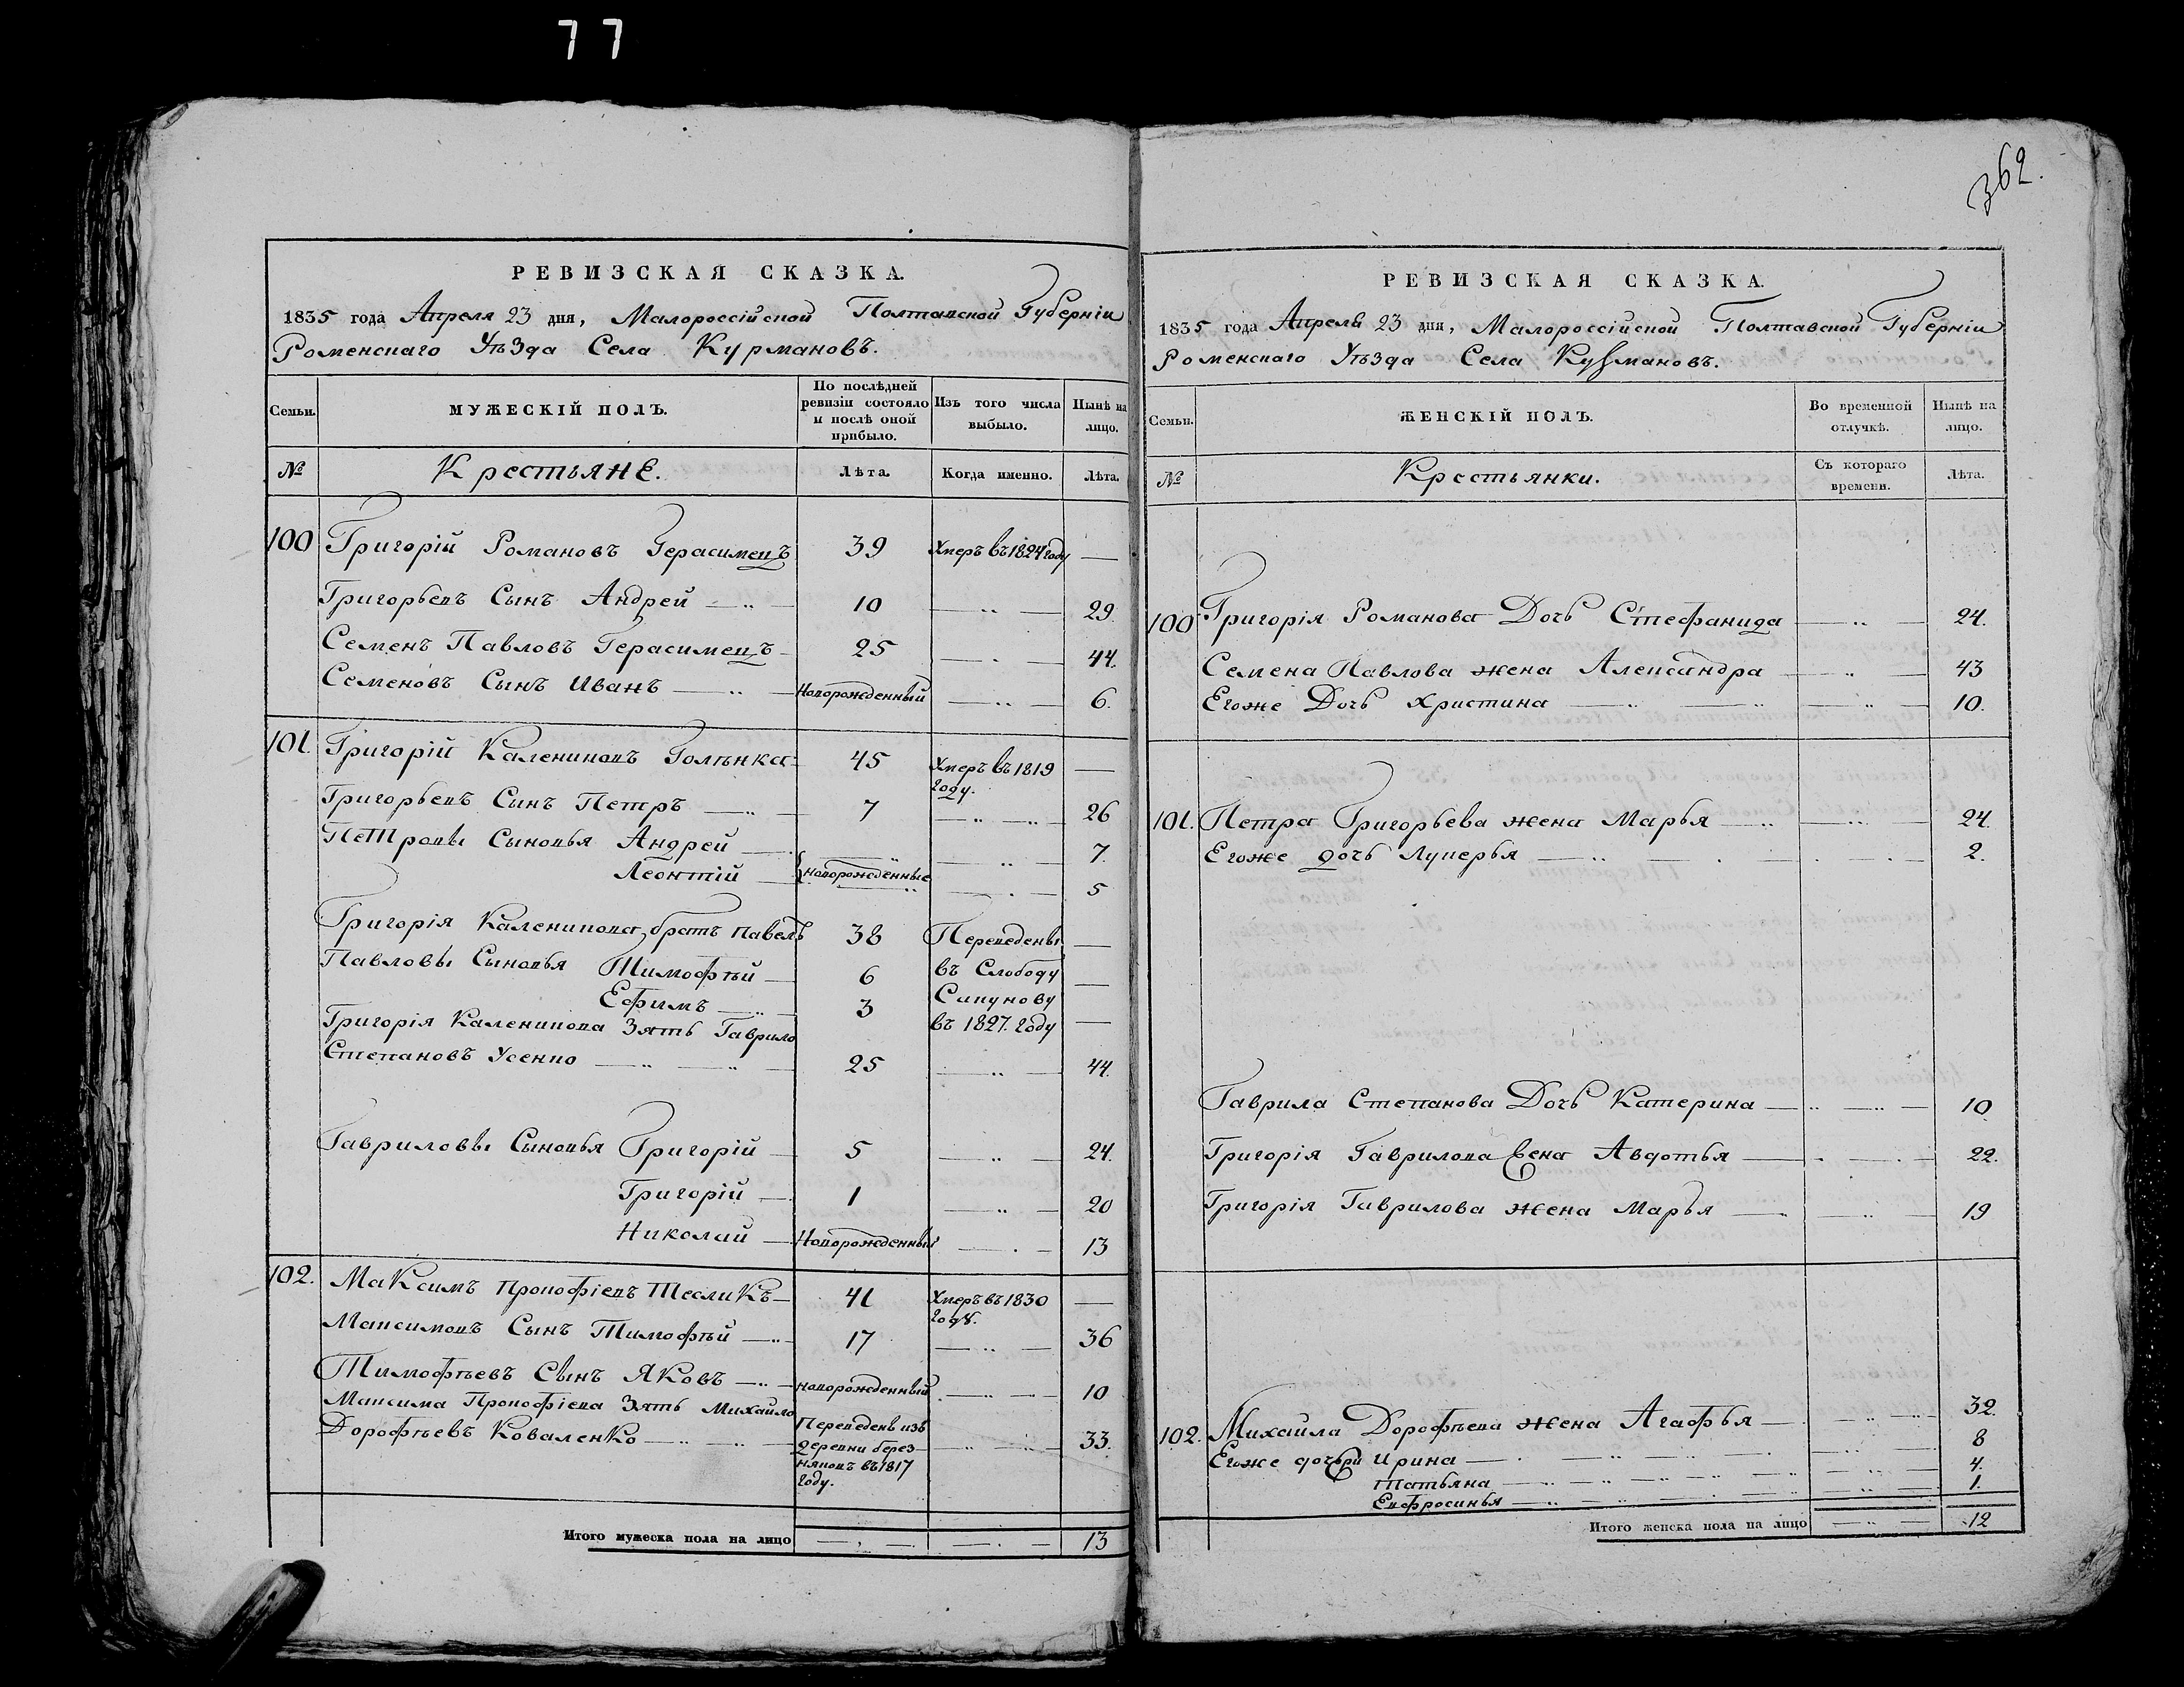 77
362.
РЕВИЗСКАЯ СКАЗКА.
1835 года Апреля 23 дня, Малороссійской Полтавской Губерніи
Роменскаго Уѣзда Села Курмановъ.
Семьи.
МУЖЕСКІЙ ПОЛЪ.
По послѣдней ревизіи состояло и послѣ оной прибыло.
Изъ того числа выбыло.
Нынѣ на лицо.
№
Крестьяне.
Лѣта.
Когда именно.
Лѣта.
100 Григорій Романовъ Герасимецъ 39 Умеръ въ 1824 году —
Григорьевъ Сынъ Андрей 10 — 29.
Семенъ Павловъ Герасимецъ 25 — 44.
Семеновъ Сынъ Иванъ Новорожденный — 6.
101. Григорій Калениковъ Голѣнка 45 Умеръ въ 1819 году. —
Григорьевъ Сынъ Петръ 7 — 26
Петровы Сыновья Андрей — 7.
Леонтій Новорожденные — 5
Григорія Каленикова братъ Павелъ 38 Переведены —
Павловы Сыновья Тимофѣй 6 въ Слободу —
Ефимъ 3 Сапунову
Григорія Каленикова Зять Гаврило въ 1827. году —
Степановъ Усенко 25 — 44.
Гавриловы Сыновья Григорій 5 — 24.
Григорій 1 — 20
Николай Новорожденный — 13
102. Максимъ Прокофіевъ Тесликъ 41 Умеръ въ 1830 году. —
Максимовъ Сынъ Тимофѣй 17 — 36
Тимофѣевъ Сынъ Яковъ новорожденный — 10
Максима Прокофіева Зять Михайло
Дорофѣевъ Коваленко Переведенъ изъ деревни березняковъ въ 1817 году. — 33.
Итого мужеска пола на лицо — — 13
РЕВИЗСКАЯ СКАЗКА.
1835 года Апреля 23 дня, Малороссійской Полтавской Губерніи
Роменскаго Уѣзда Села Курмановъ.
Семьи.
ЖЕНСКІЙ ПОЛЪ.
Во временной отлучкѣ.
Нынѣ на лицо.
№
Крестьянки.
Съ котораго времени.
Лѣта.
100 Григорія Романова Дочь Стефанида — 24.
Семена Павлова жена Александра — 43
Егоже Дочь Христина — 10.
101. Петра Григорьева жена Марья — 24.
Егоже дочь Лукерья — 2.
Гаврила Степанова Дочь Катерина — 10
Григорія Гаврилова жена Авдотья — 22.
Григорія Гаврилова жена Марья — 19
102. Михайла Дорофѣева жена Агафья — 32.
Егоже дочери Ирина — 8
Татьяна — 4.
Евфросинья — 1.
Итого женска пола на лицо — 12